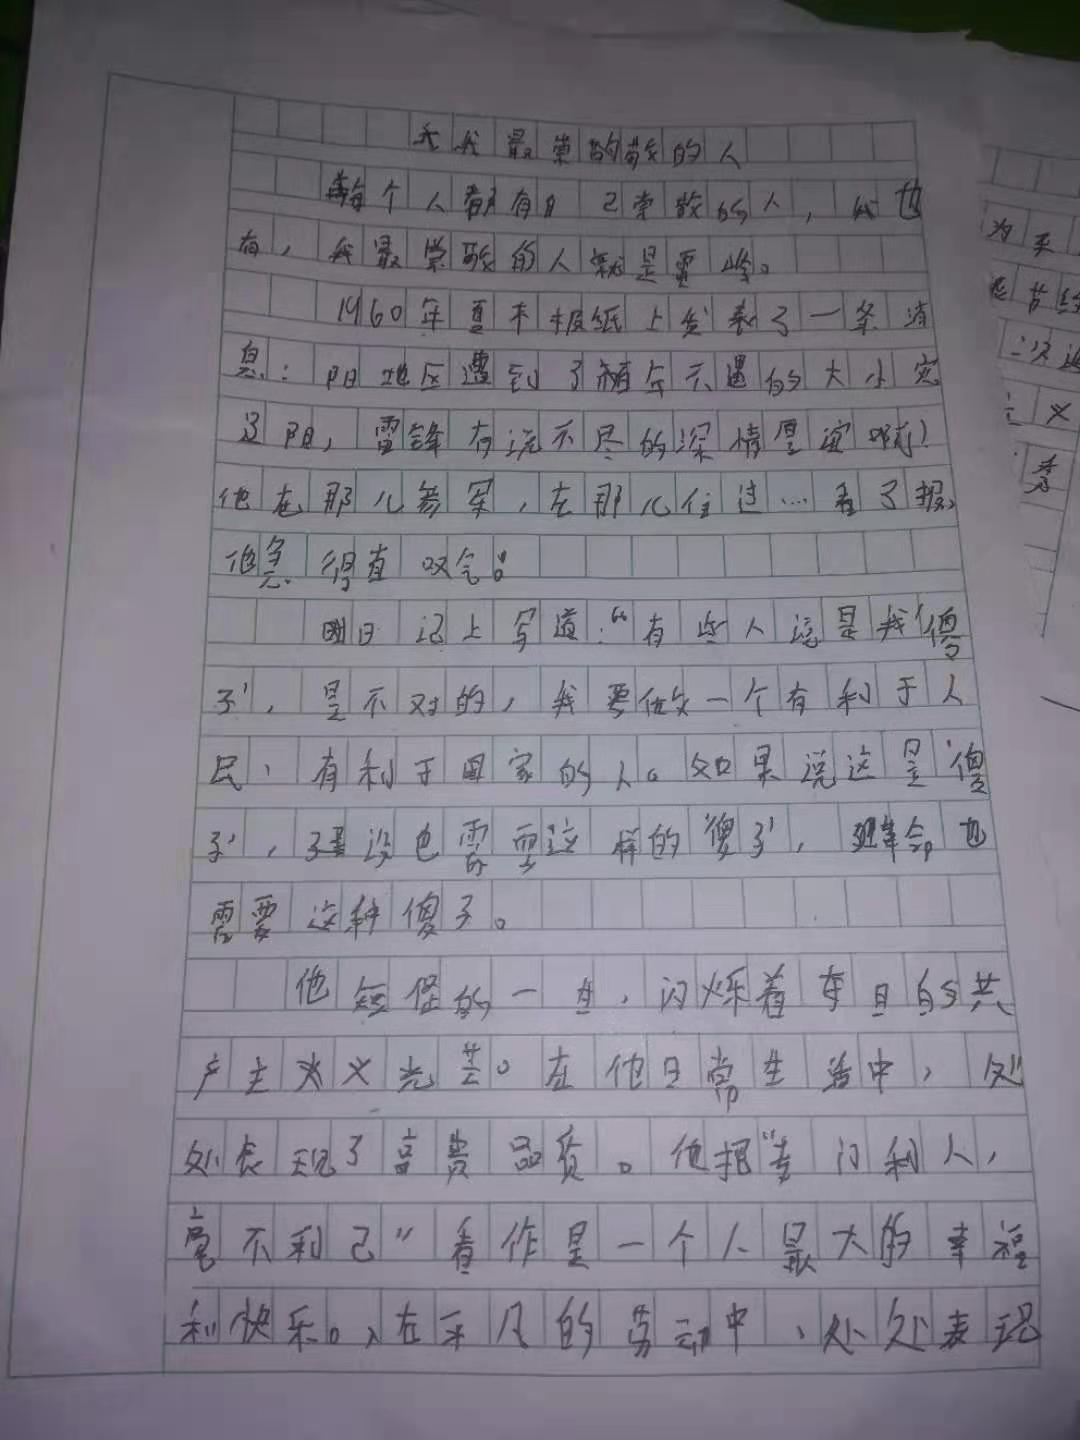 我最崇敬的人
每个人都有自己崇敬的人，我也
有，我最崇敬的人就是雷峰。
1960年夏末报纸上发表了一条消
息：阳地区遭到了稀年不遇的大水灾
阳，雷锋有说不尽的深情厚谊啊！
他在那儿参军，在那儿住过…看了报，
他急得直叹气。
日记上写道：“有些人说是我‘傻
子’，是不对的，我要做一个有利于人
民、有利于国家的人。如果说这是‘傻
子’，设也需要这样的‘傻子’，革命也
需要这种傻子。
他短的一生，闪烁着夺目的共
产主义光芒。在他日常生活中，处
处表现了高贵品质。他把“专门利人，
毫不利己”看作是一个人最大的幸福
和快乐。在平凡的劳动中，处处表现
为平